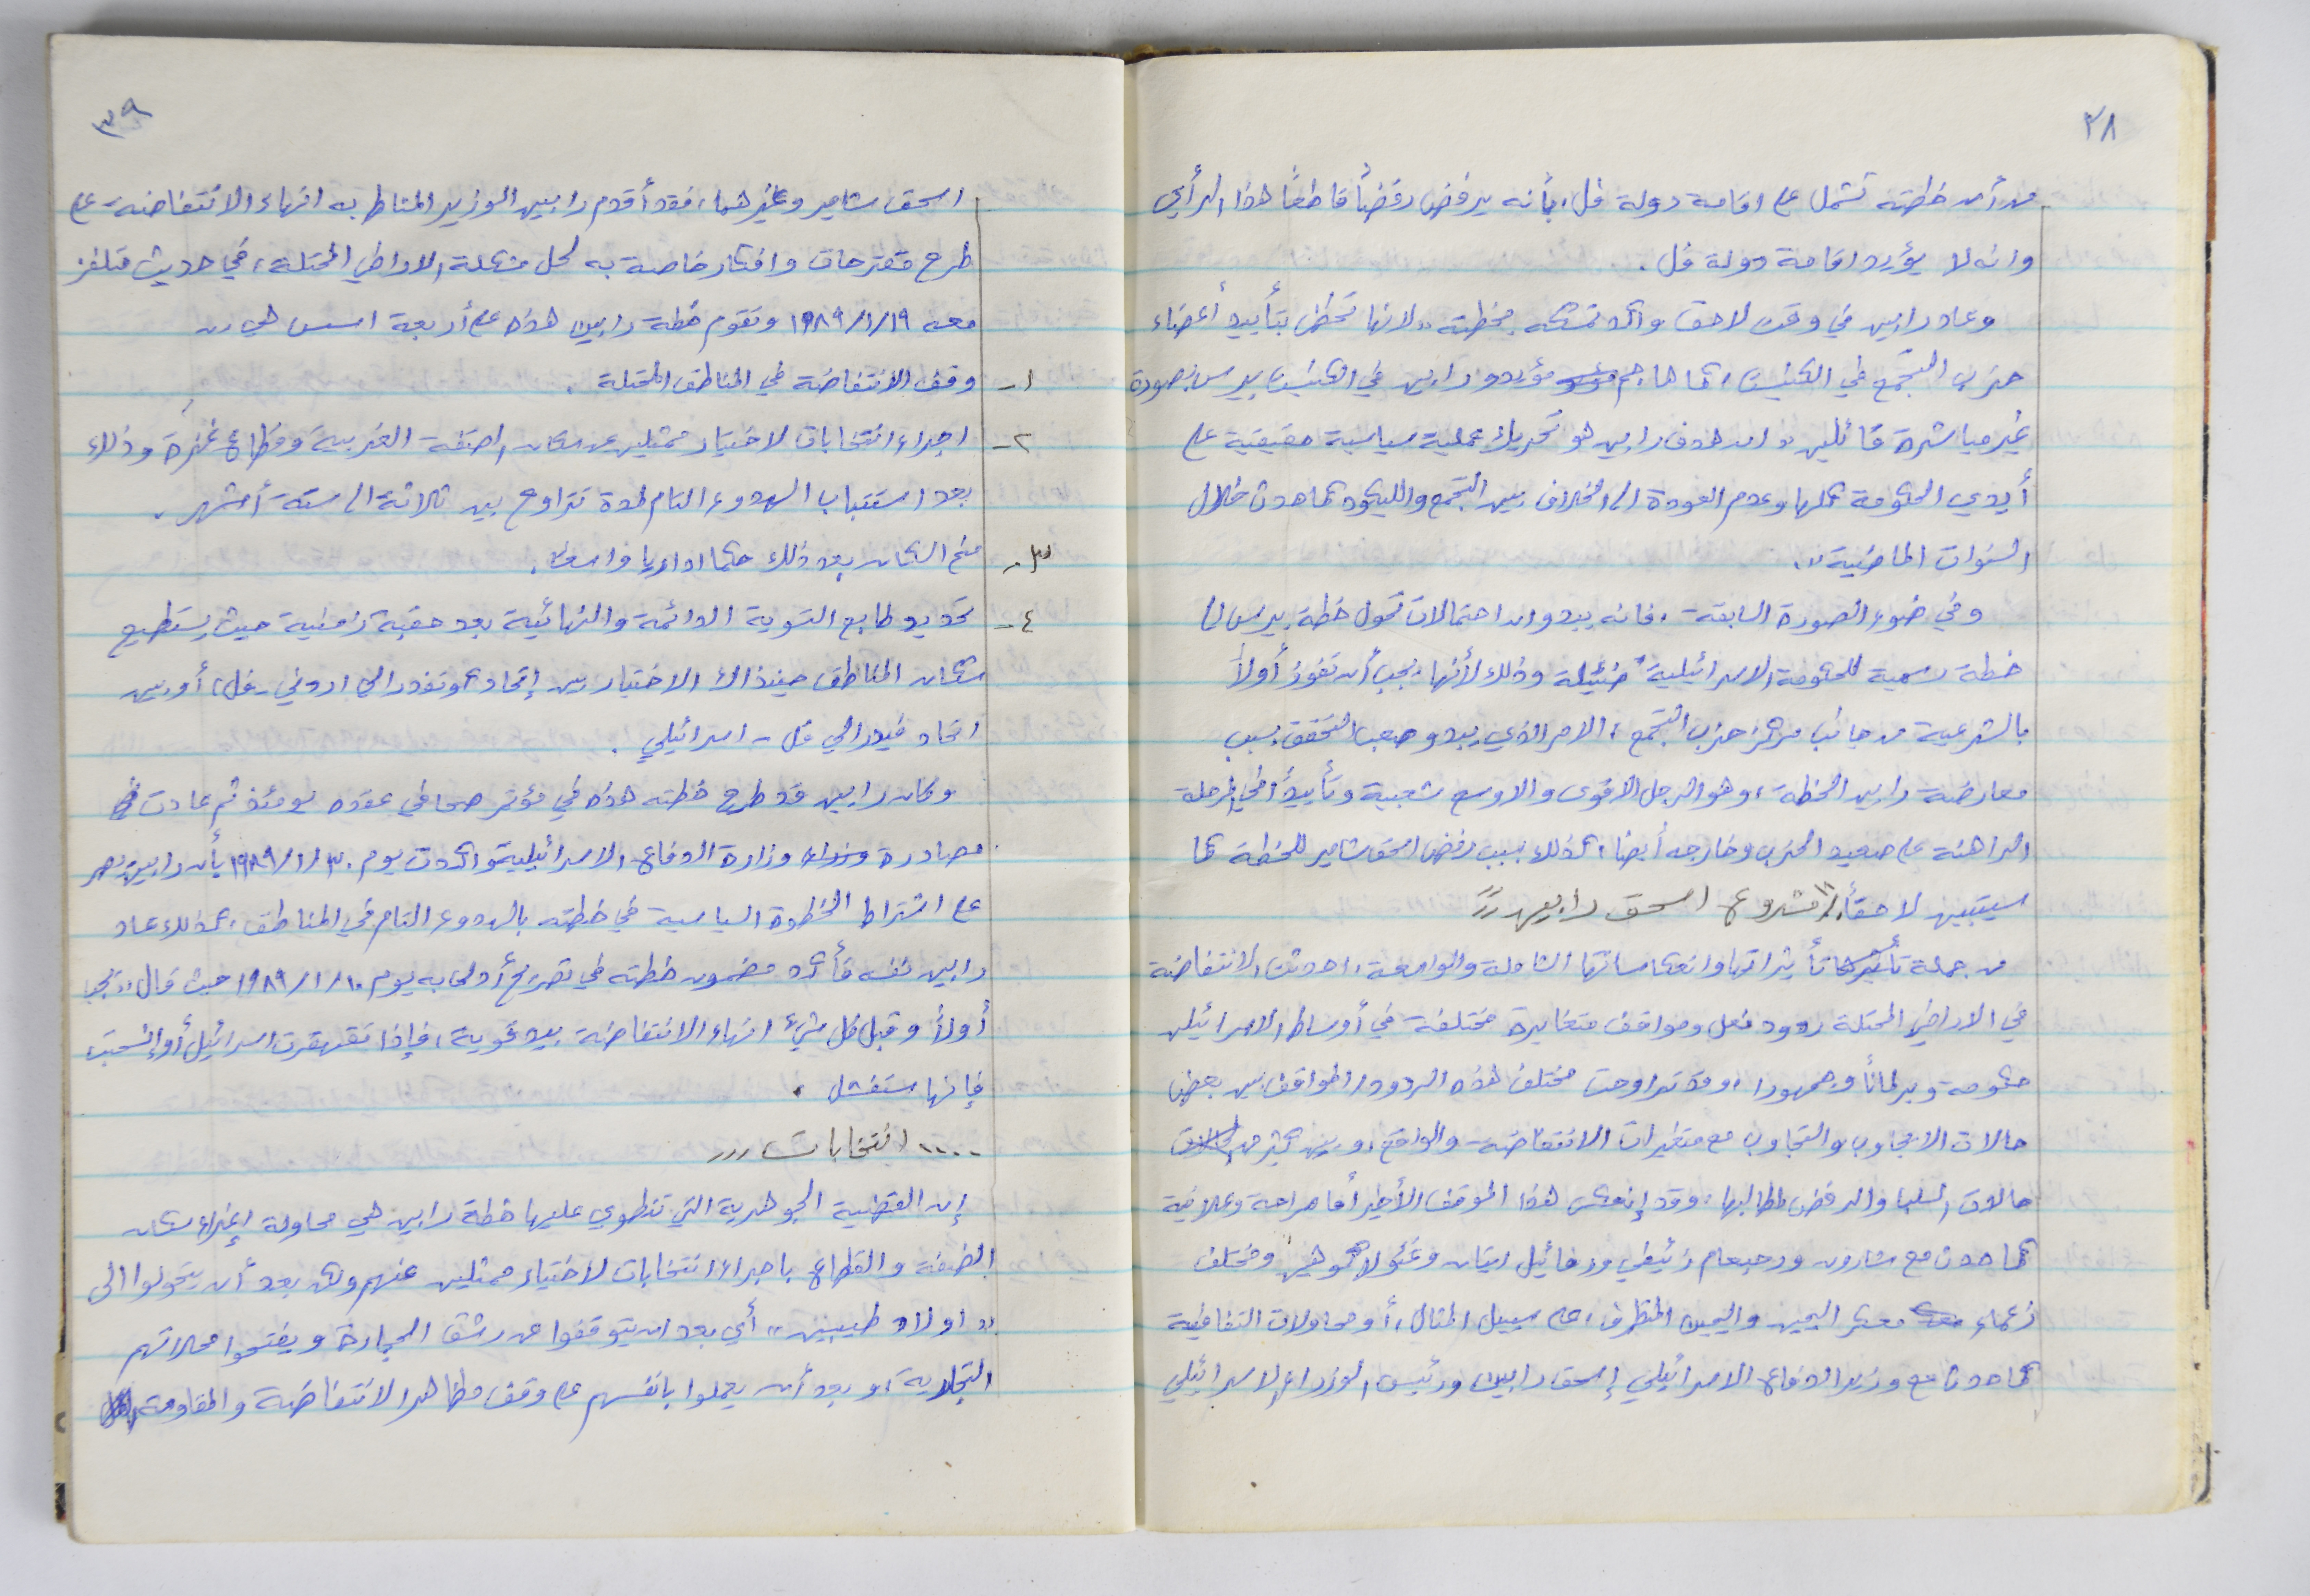 ٣٨
من أن خطته تشمل على اقامة دولة فل، بأنه يرفض رفضاً قاطعاً هذا الرأي
وانه لا يؤيد اقامة دولة فل.
وعاد رابين في وقت لاحق وأكد تمسكه بخطته "لانها تحظى بتأييد أعضاء
حزب التجمع في الكنيست، كما هاجم مؤيدو رابين في الكنيست بيرس بصورة
غير مباشرة قائلين "ان هدف رابين هو تحريك عملية سياسية حقيقية على
أيدي الحكومة كلها وعدم العودة الى الخلاف بين التجمع والليكود كما حدث خلال
السنوات الماضية".
وفي ضوء الصورة السابقة، فانه يبدو ان احتمالات تحول خطة بيرس الى
خطة رسمية للحكومة الاسرائيلية ضئيلة وذلك لأنها يجب أن تفوز أولاً
بالشرعية من جانب مركز حزب التجمع، الامر الذي يبدو صعب التحقق بسبب
معارضة رابين للخطة، وهو الرجل الاقوى والاوسع شعبية وتأييداً في المرحلة
الراهنة على صعيد الحزب وخارجه أيضا، كذلك بسبب رفض اسحق شامير للخطة كما
سيتبين لاحقاً. "مشروع اسحق رابين"
من جملة تأثيراتها وانعكاساتها الشاملة والواسعة، احدثت الانتفاضة
في الاراضي المحتلة ردود فعل ومواقف متغايرة مختلفة في أوساط الاسرائيلين
حكومة وبرلماناً وجمهورا، وقد تراوحت مختلف هذه الردود المواقف بين بعض
حالات الايجاب والتجاوب مع متغيرات الانتفاضة والواقع، وبين كثير من
حالات السلب والرفض لمطالبها، وقد إنعكس هذا الموقف الأخير أما صراحة وعلانية
كما حدث مع شارون ورحبعام زئيفي ورفائيل ايتان وغئولا كوهين ومختلف
زعماء معسكر اليمين واليمين المتطرف، على سبيل المثال، أو محاولات التفافية
كما حدث مع وزير الدفاع الاسرائيلي إسحق رابين ورئيس الوزراء الاسرائيلي
٣٩
اسحق شامير وغيرهما، فقد أقدم رابين الوزير المناط به انهاء الانتفاضة - على
طرح مقترحات وافكار خاصة به لحل مشكلة الاراضي المحتلة، في حديث متلفز
معه ١٩/١/١٩٨٩ وتقوم خطة رابين هذه على أربعة اسس هي :-
١- وقف الانتفاضة في المناطق المحتلة.
٢- اجراء انتخابات لاختيار ممثلين عن سكان الضفة الغربية وقطاع غزة وذلك
بعد استتباب الهدوء التام لمدة تتراوح بين ثلاثة الى ستة أشهر.
٣- منح السكان بعد ذلك حكما اداريا واسعا.
٤- تحديد طابع التسوية الدائمة والنهائية بعد حقبة زمنية حيث يستطيع
سكان المناطق حينذاك الاختيار بين إتحاد كونفدرالي اردني - فل، أو بين
اتحاد فيدرالي فل - اسرائيلي.
وكان رابين قد طرح خطته هذه في مؤتمر صحافي عقده يومئذ ثم عادت
مصادرة وزارة الدفاع الاسرائيلية وأكدت يوم ٣٠/١/١٩٨٩ بأن رابين يصر
على اشتراط الخطوة السياسية في خطته بالهدوء التام في المناطق، كذلك عاد
رابين نفسه فأكد مضمون خطته في تصريح أدلى به يوم ١٠/١/١٩٨٩ حيث قال "يجب
أولاً وقبل كل شيء انهاء الانتفاضة بيد قوية، فإذا تقهقرت اسرائيل أو إنسحبت
فإنها ستفشل.
"انتخابات"
إن القضية الجوهرية التي تنطوي عليها خطة رابين هي محاولة إغراء سكان
الضفة والقطاع باجراء انتخابات لاختيار ممثلين عنهم ولكن بعد أن يتحولوا الى
"اولاد طيبين" أي بعد ان يتوقفوا عن رشق الحجارة ويفتحوا محلاتهم
التجارية، وبعد أن يعملوا بانفسهم على وقف مظاهر الانتفاضة والمقاومة